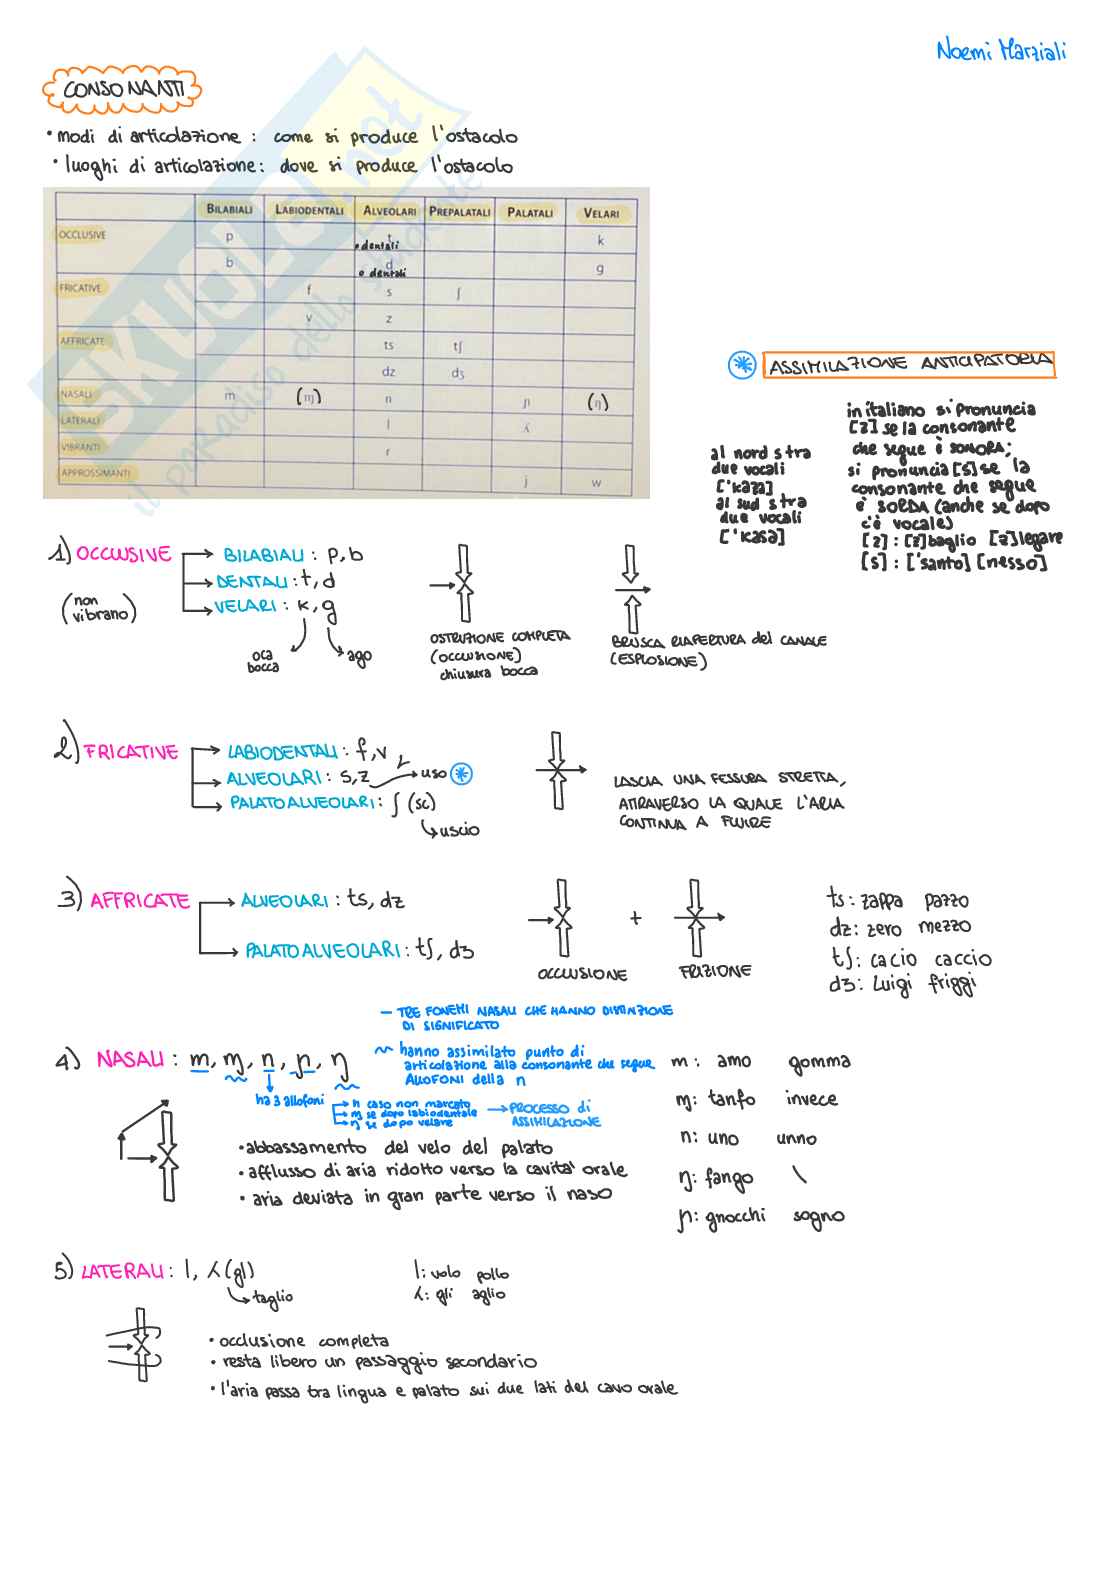 Noemi Marziali
CONSONANTI
• modi di articolazione : come si produce l'ostacolo
• luoghi di articolazione: dove si produce l'ostacolo
SKUOLA.net
il paradiso dello studente
BILABIALI LABIODENTALI ALVEOLARI PREPALATALI PALATALI VELARI
OCCLUSIVE p t k
o dentali
b d g
o dentali
FRICATIVE f s ʃ
v z
AFFRICATE ts tʃ
dz dʒ
NASALI m (ɱ) n ɲ (ŋ)
LATERALI l ʎ
VIBRANTI r
APPROSSIMANTI j w
* ASSIMILAZIONE ANTICIPATORIA
in italiano si pronuncia
[z] se la consonante
che segue è SONORA;
si pronuncia [s] se la
consonante che segue
è SORDA (anche se dopo
c'è vocale)
[z] : [z]baglio [z]legare
[s] : ['santo] [nesso]
al nord s tra
due vocali
['kaza]
al sud s tra
due vocali
['kasa]
1) OCCLUSIVE → BILABIALI : p, b
→ DENTALI : t, d
→ VELARI : k, g
(non vibrano)
oca
bocca
ago
OSTRUZIONE COMPLETA
(OCCLUSIONE)
chiusura bocca
BRUSCA RIAPERTURA del CANALE
(ESPLOSIONE)
2) FRICATIVE → LABIODENTALI : f, v
→ ALVEOLARI : s, z → uso *
→ PALATOALVEOLARI : ʃ (sc)
↳ uscio
LASCIA UNA FESSURA STRETTA,
ATTRAVERSO LA QUALE L'ARIA
CONTINUA A FLUIRE
3) AFFRICATE → ALVEOLARI : ts, dz
→ PALATOALVEOLARI : tʃ, dʒ
OCCLUSIONE + FRIZIONE
ts : zappa pazzo
dz : zero mezzo
tʃ : cacio caccio
dʒ : Luigi friggi
– TRE FONEMI NASALI CHE HANNO DISTINZIONE
DI SIGNIFICATO
4) NASALI : m, ɱ, n, ɲ, ŋ
~ hanno assimilato punto di
articolazione alla consonante che segue
ALLOFONI della n
ha 3 allofoni
→ n caso non marcato
→ ɱ se dopo labiodentale
→ ŋ se dopo velare
→ PROCESSO di
ASSIMILAZIONE
• abbassamento del velo del palato
• afflusso di aria ridotto verso la cavita' orale
• aria deviata in gran parte verso il naso
m : amo gomma
ɱ : tanfo invece
n : uno unno
ŋ : fango \
ɲ : gnocchi sogno
5) LATERALI : l, ʎ (gl)
↳ taglio
l : volo pollo
ʎ : gli aglio
• occlusione completa
• resta libero un passaggio secondario
• l'aria passa tra lingua e palato sui due lati del cavo orale